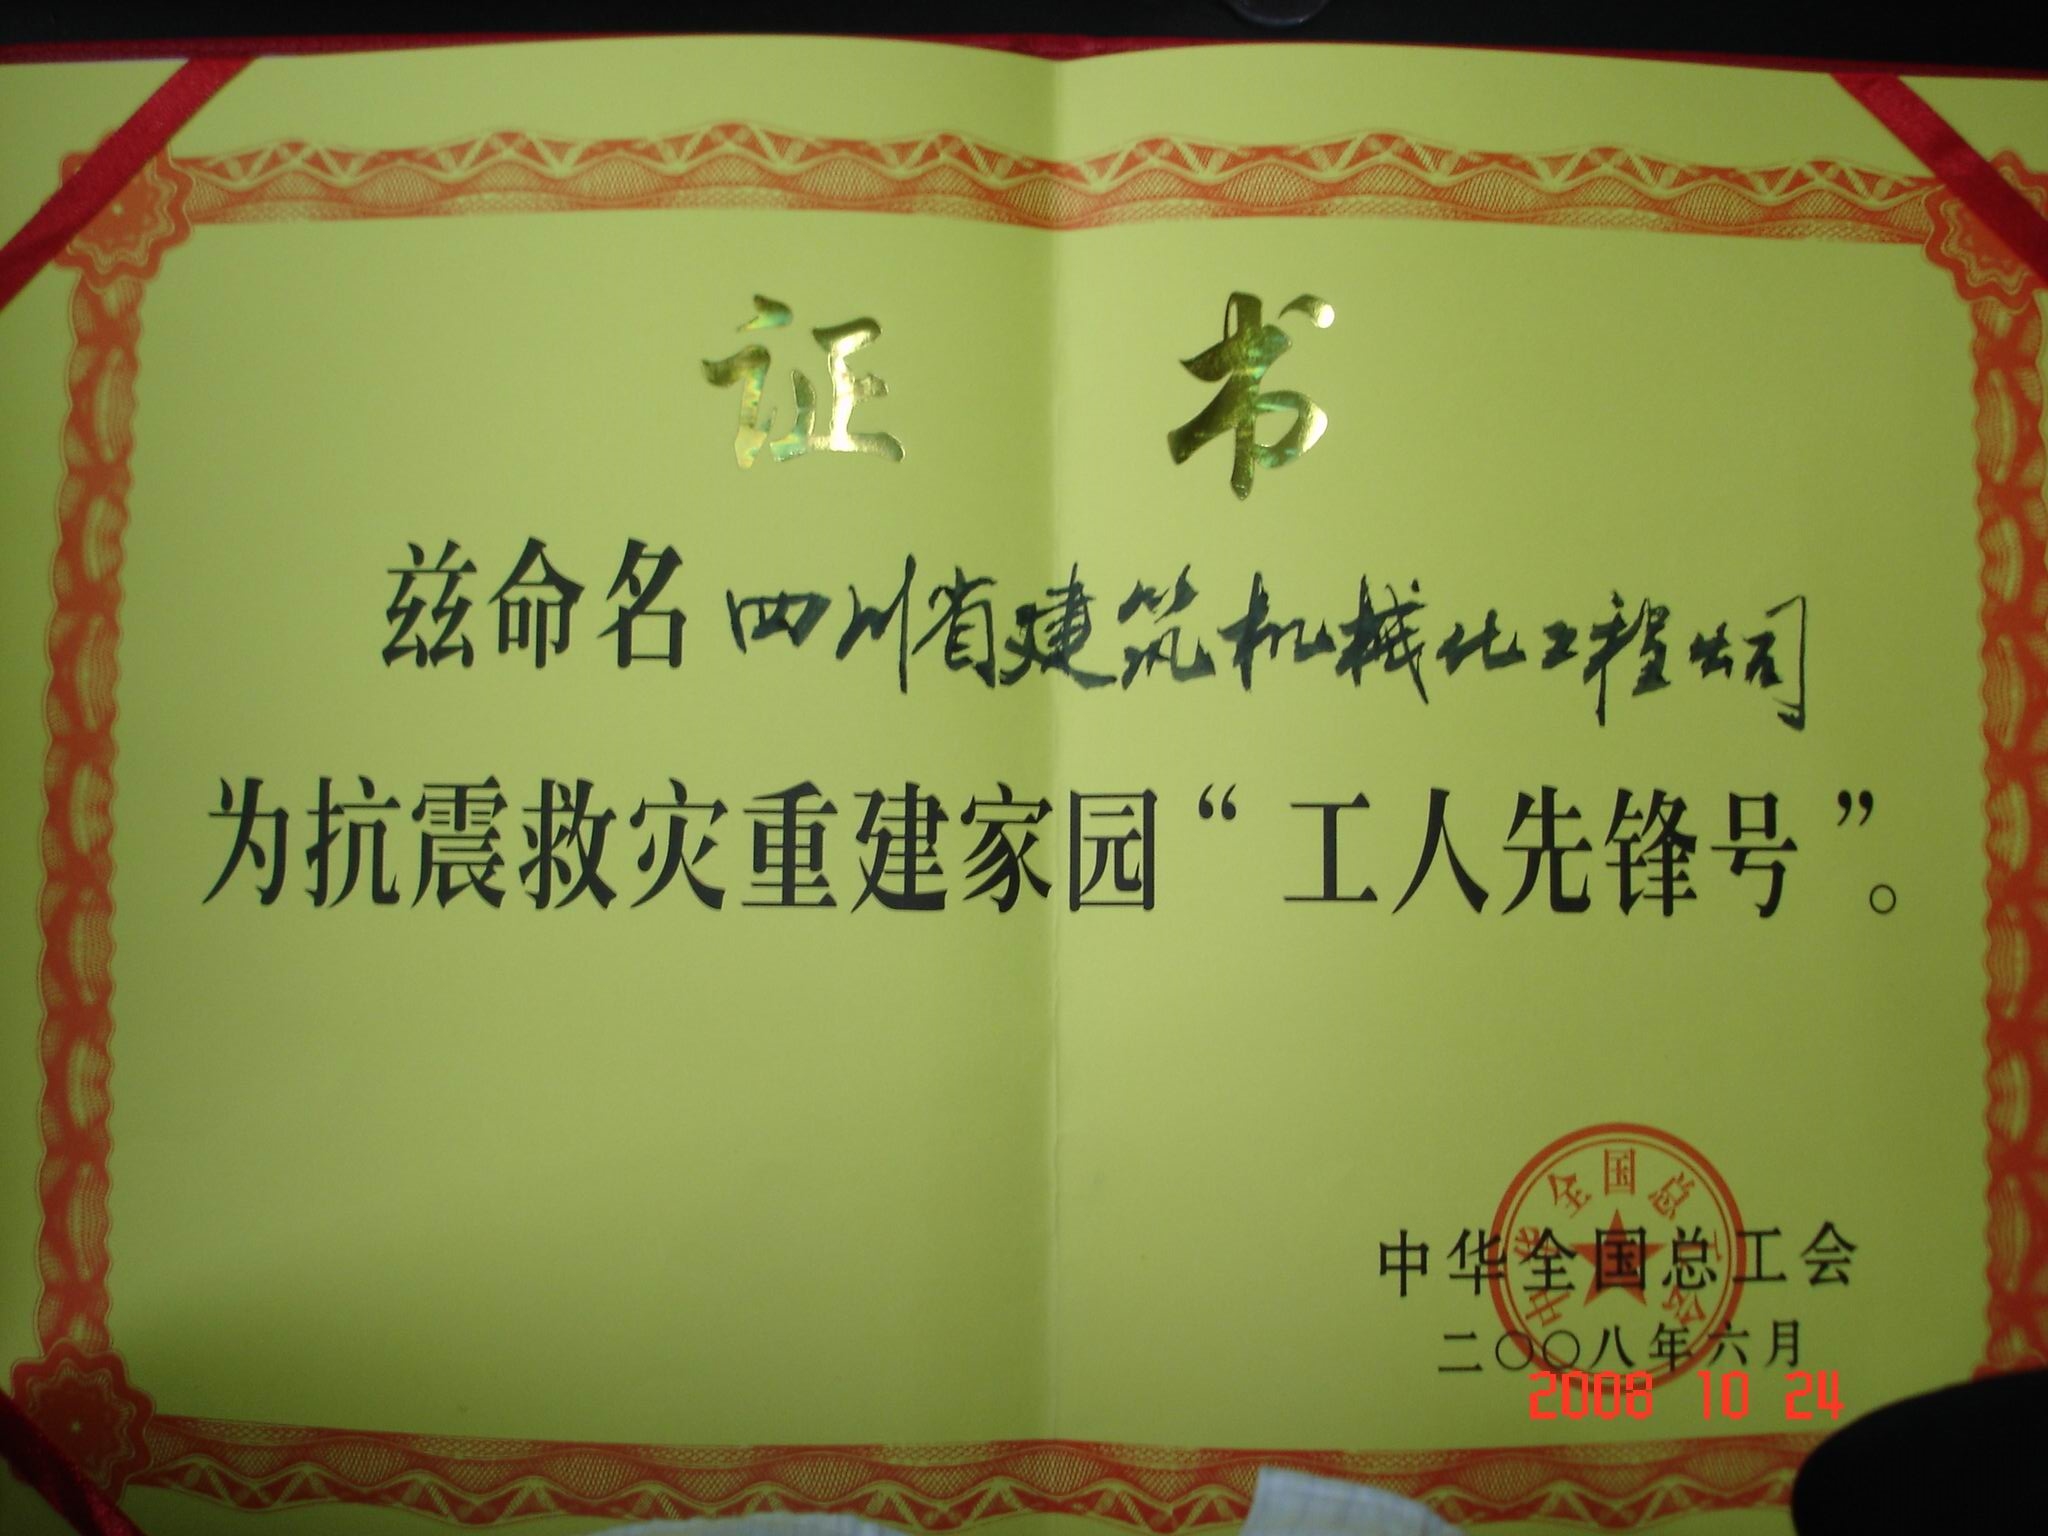 证书
兹命名四川省建筑机械化工程公司
为抗震救灾重建家园“工人先锋号”。
中华全国总工会
中华全国总工会
二○○八年六月
2008 10 24